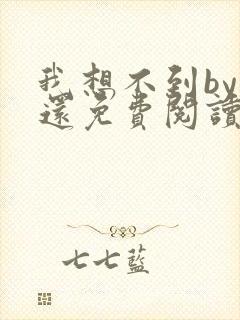 我想不到by
還免費閱讀
七七藍